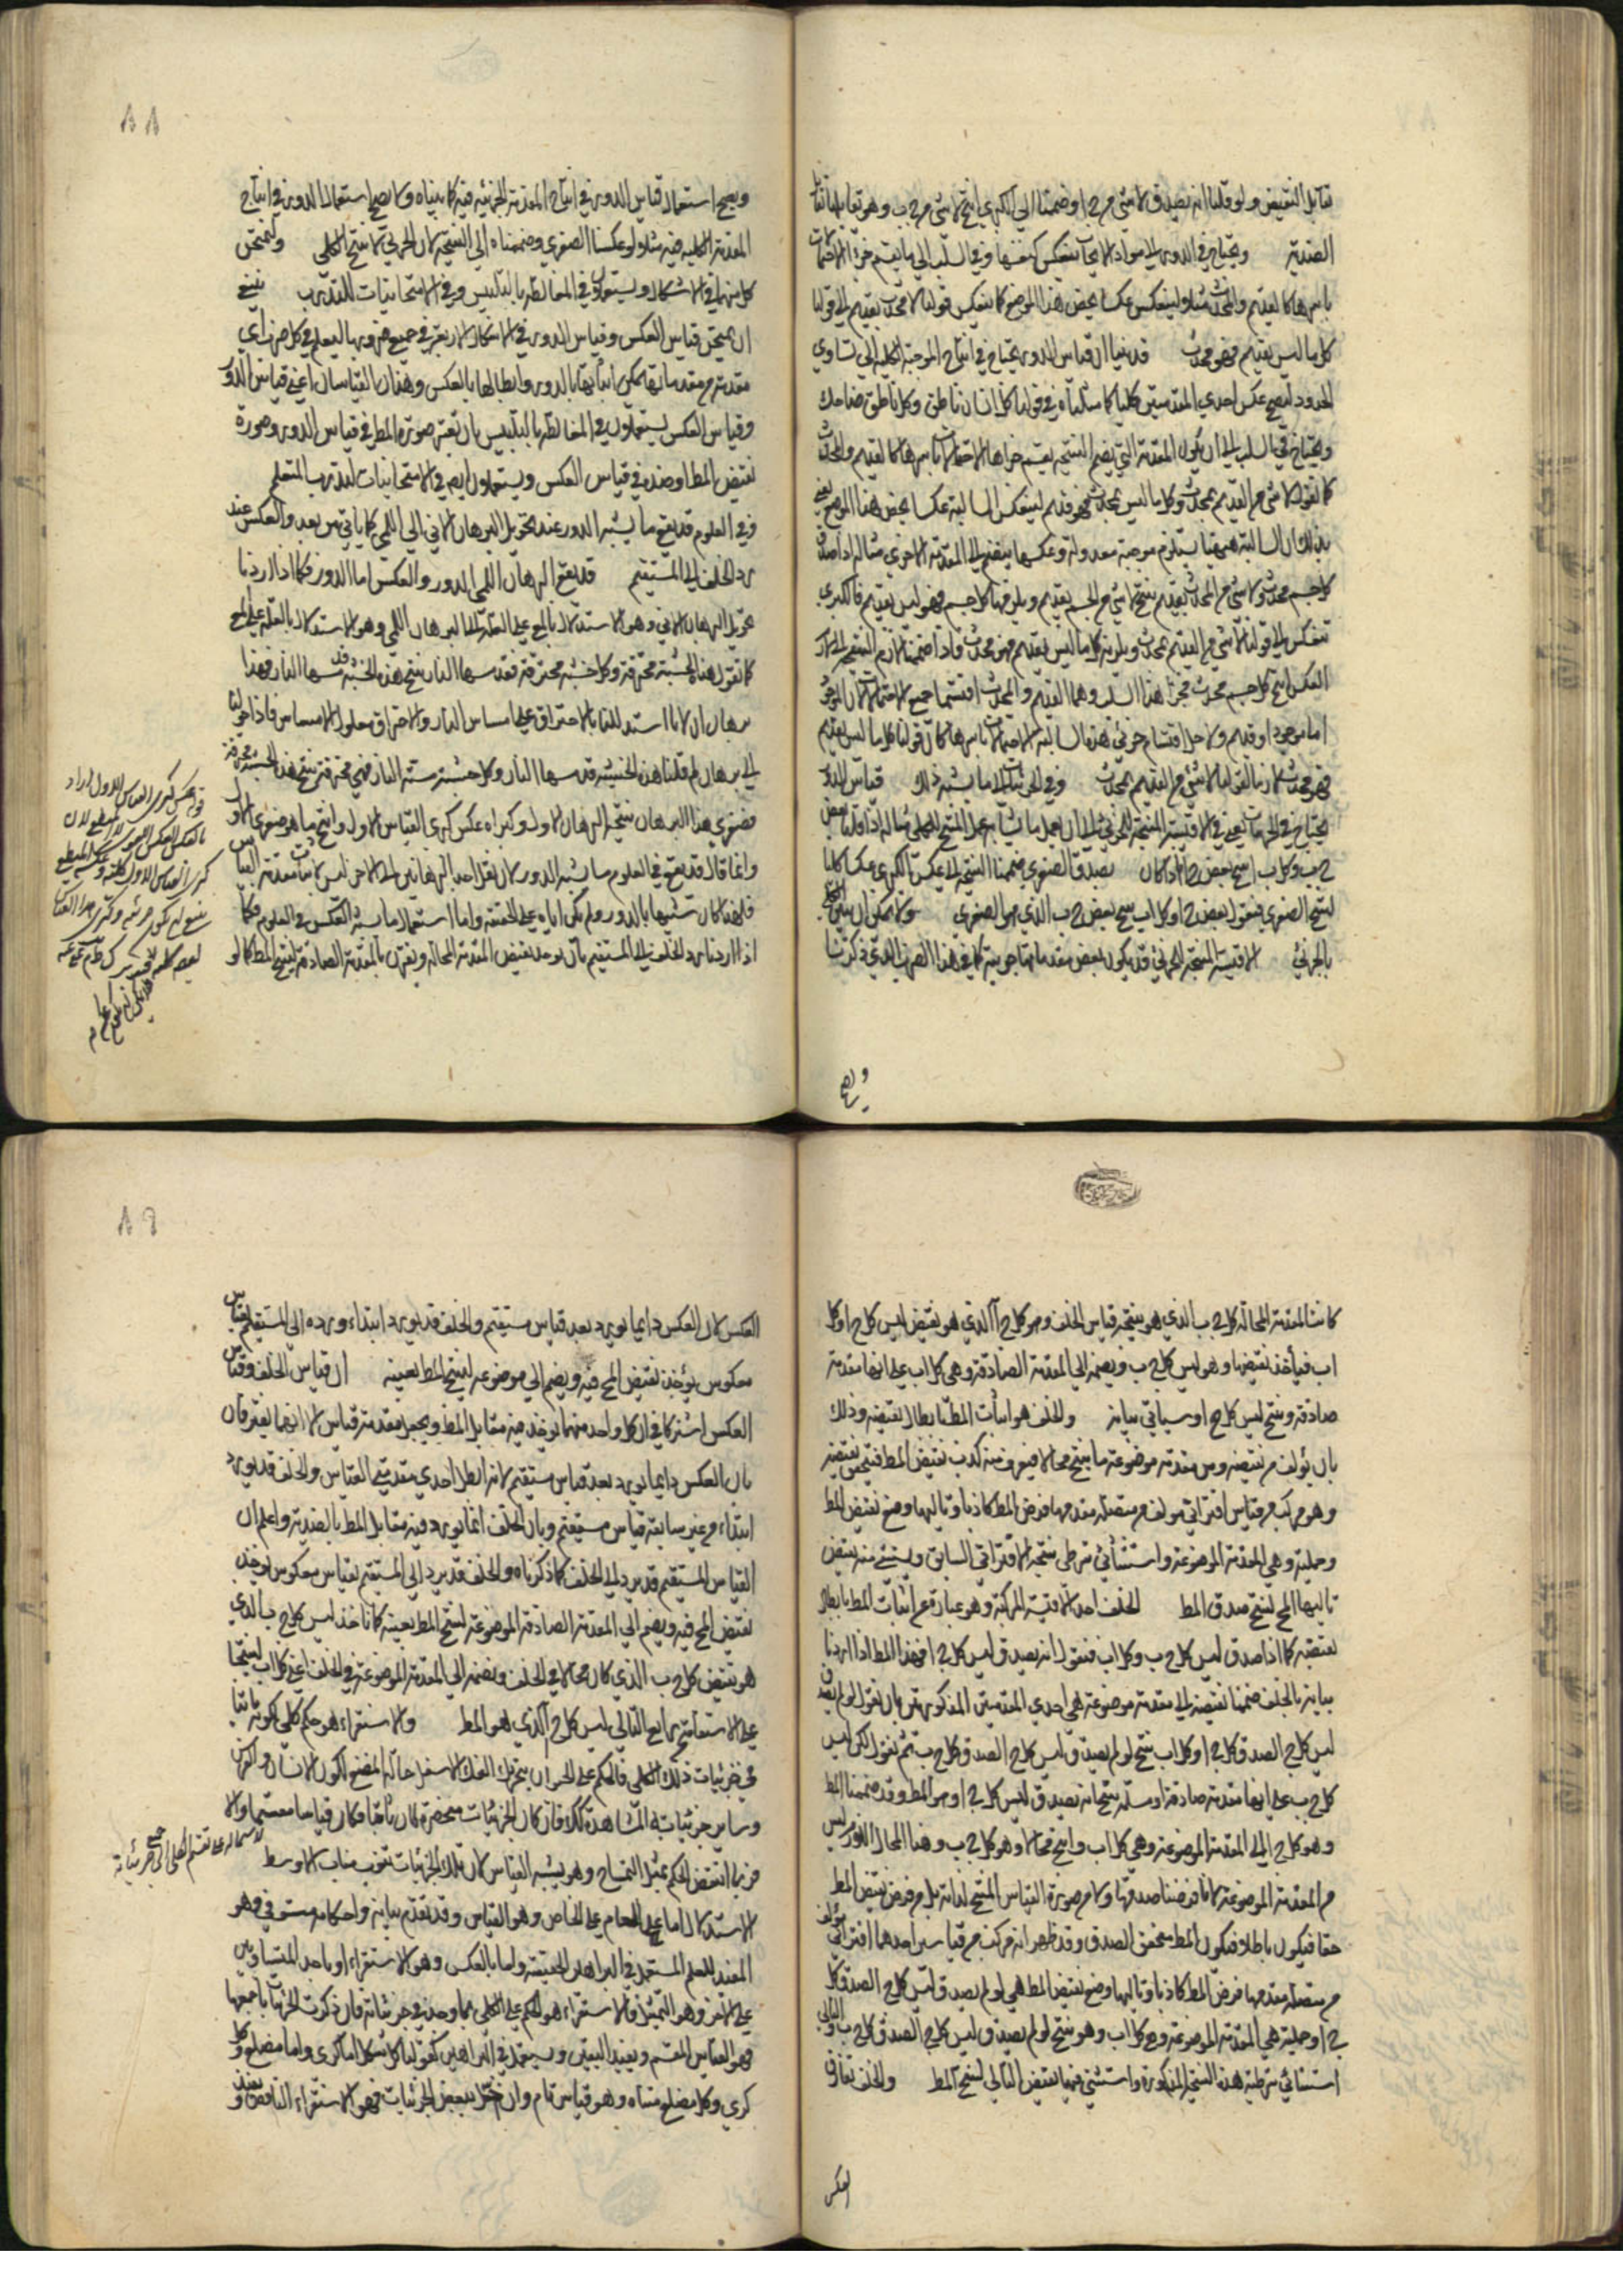 تقابل النقيض ولو قلنا انه يصدق لا شي من ج ا وضممنا الى الكبرى انتج لا شي من ج ب وهو تقابلها تقابل
الضدية ويحتاج في الدور الى مواد الايجاب ينعكس كنفسها وفي السلب الى ما يقتسم جزءا الاحتمالات
باسرها كالقديم والمحدث مثلا ولينعكس عكسا يخص هذا الموضع كما ينعكس قولنا لا محدث بقديم الى قولنا
كل ما ليس بقديم فهو محدث قد بينا ان قياس الدور يحتاج في انتاج الموجبة الكلية الى تساوي
الحدود ليصح عكس احدى المقدمتين كليا كما مثلناه في قولنا كل انسان ناطق وكل ناطق ضاحك
ويحتاج في السلب الى ان يكون المقدمة التي يضم النتيجة يقتسم جزءاها الاحتمالات باسرها كالقديم والمحدث
كما نقول لا شي من القديم بمحدث وكل ما ليس بمحدث فهو قديم لينعكس السالبة عكسا يخص هذا الموضع يعني
بذلك ان السالبة هيهنا يستلزم موجبة معدولة وعكسها ينضم الى المقدمة الاخرى مثاله اذا صدق
كل جسم محدث ولا شي من المحدث بقديم ينتج لا شي من الجسم بقديم ويلزمها كل جسم فهو ليس بقديم فالكبرى
تنعكس الى قولنا لا شي من القديم بمحدث ويلزمه كل ما ليس بقديم فهو محدث واذا ضممنا لازم النتيجة الى لازم
العكس انتج كل جسم محدث فجزءا هذا السلب وهما القديم والمحدث اقتسما جميع الاحتمالات لان الموجود
اما موجود او قديم ولاجل اقتسام جزئي هذه السالبة الاحتمالات باسرها كان قولنا كل ما ليس بقديم
فهو محدث لازما لقولنا لا شي من القديم بمحدث وفي الجزئيات الى ما يشبه ذلك قياس الدور
يحتاج في الجزئيات يعني في الاقيسة المنتجة للجزئي الى ان يعمل ما يشابه عمل المنتج للكلي مثاله اذا قلنا بعض
ج ب وكل ب ا ينتج بعض ج ا فاذا كان يصدق الصغرى ضممنا النتيجة الى عكس الكبرى عكسا كليا
لينتج الصغرى فنقول بعض ج ا وكل ا ب ينتج بعض ج ب الذي هو الصغرى ولا يمكن ان يبين الكلي
بالجزئي الاقيسة المنتجة للجزئي قد يكون بعض مقدماتها جزئية كما في هذا الضرب الذي ذكرنا
ويصح
٨٨
ويصح استعمال قياس الدور في انتاج المقدمة الجزئية فيه كما بيناه ولا يصح استعمال الدور في انتاج
المقدمة الكلية فيه مثلا لو عكسنا الصغرى وضممناه الى النتيجة لان الجزئي لا ينتج الكلي وليمتحن
كل منهما في الاشكال ويستعملان في المغالطة بالتلبيس وفي الامتحانيات للتدرب ينبغي
ان يمتحن قياس العكس وقياس الدور في الاشكال الاربعة في جميع ضروبها ليعلم في كل ضرب اي
مقدمة من مقدماتها يمكن اثباتها بالدور وابطالها بالعكس وهذان القياسان اعني قياس الدور
وقياس العكس يستعملان في المغالطة بالتلبيس بان تغير صورة المط في قياس الدور وصورة
نقيض المط او ضده في قياس العكس ويستعملان ايضا في الامتحانيات لتدرب المتعلم
وفي العلوم قد يقع ما يشبه الدور عند تحويل البرهان الاني الى اللمي كما ياتي من بعد والعكس عند
رد الخلف الى المستقيم قد يقع البرهان اللمي الدور والعكس اما الدور فكما اذا اردنا
تحويل البرهان الاني وهو الاستدلال بالمع على العلة الى البرهان اللمي وهو الاستدلال بالعلة على المع
كما نقول هذه الخشبة محترقة وكل خشبة محترقة فقد مسها النار ينتج هذه الخشبة قد مسها النار فهذا
برهان ان لانا استدللنا بالاحتراق على مساس النار والاحتراق معلول الامساس فاذا حولنا
الى برهان لم قلنا هذه الخشبة قد مسها النار وكل خشبة مسته النار فهي محترقة ينتج هذه الخشبة محترقة
فصغرى هذا البرهان نتيجة البرهان الاول وكبراه عكس كبرى القياس الاول وانتج ما هو صغرى الاول
وانما قال قد يقع في العلوم ما يشبه الدور لان نقل احد البرهانين الى الاخر ليس لاثبات مقدمة القياس
فلهذا كان شبيها بالدور ولم يكن اياه على الحقيقة واما استعمال ما يشبه العكس في العلوم فكما
اذا اردنا رد الخلف الى المستقيم بان يوخذ نقيض المقدمة المحالة ويقرن بالمقدمة الصادقة لينتج المط كما لو
كانت المقدمة المحالة كل ج ب الذي هو نتيجة قياس الخلف وهو كل ج ا الذي هو نقيض ليس كل ج ا وكل
ا ب فيأخذ نقيضها وهو ليس كل ج ب ويضمه الى المقدمة الصادقة وهي كل ا ب على انها مقدمة
صادقة وينتج ليس كل ج ا وسياتي بيانه والخلف هو اثبات المط بابطال نقيضه وذلك
بان يؤلف من نقيضه ومن مقدمة موضوعة ما ينتج محالا فيعرف منه كذب نقيض المط فيتحقق نقيضه
وهو مركب من قياس اقتراني مولف من متصلة مقدمها فرض المط كاذبا وتاليها وضع نقيض المط
وحملية وهي المقدمة الموضوعة واستثنائي شرطي نتيجة الاقتراني السابق ويستثني منه نقيض
تاليها المح لينتج صدق المط الخلف احد الاقيسة المركبة وهو عبارة عن اثبات المط بابطال
نقيضه كما اذا صدق ليس كل ج ب وكل ا ب فنقول انه يصدق ليس كل ج ا فهذا المط اذا اردنا
بيانه بالخلف ضممنا نقيضه الى مقدمة موضوعة هي احدى المقدمتين المذكورتين بان نقول لو لم يصدق
ليس كل ج ا لصدق كل ج ا وكل ا ب ينتج لو لم يصدق ليس كل ج ا لصدق كل ج ب ثم نقول لكن ليس
كل ج ب على انها مقدمة صادقة او مسلمة ينتج انه يصدق ليس كل ج ا وهو المط وقد ضممنا المط
وهو كل ج ا الى المقدمة الموضوعة وهي كل ا ب وانتج محالا وهو كل ج ب وهذا المحال اللزوم ليس
من المقدمة الموضوعة لانا فرضنا صدقها ولا من صورة القياس المنتج لذاته بل من فرض نقيض المط
حقا فيكون باطلا فيكون المط متحقق الصدق وقد ظهر انه مركب من قياسين احدهما اقتراني مؤلف
من متصلة مقدمها فرض المط كاذبا وتاليها وضع نقيض المط هي لو لم يصدق ليس كل ج ا لصدق كل
ج ا وحملية هي المقدمة الموضوعة وهي كل ا ب وهو ينتج لو لم يصدق ليس كل ج ا لصدق كل ج ب والثاني
استثنائي شرطيته هذه النتيجة المذكورة واستثني فيها نقيض التالي لينتج المط والخلف يفارق
العكس
٨٩
العكس لان العكس دايما يورد بعد قياس مستقيم والخلف قد يورد ابتداء ورده الى المستقيم بقياس
معكوس يؤخذ نقيض المح فيه ويضم الى موضوعه لينتج المط بعينه ان قياس الخلف وقياس
العكس اشتركا في ان كل واحد منهما يوخذ فيه مقابل المط ويجعل مقدمة قياس الا انهما يفترقان
بان العكس دايما يورد بعد قياس مستقيم لانه ابطل احدى مقدمتي القياس والخلف قد يورد
ابتداء من غير سابقة قياس مستقيم وبان الخلف انما يورد فيه مقابل المط بالضدية واعلم ان
القياس المستقيم قد يرد الى الخلف كما ذكرناه والخلف قد يرد الى المستقيم بقياس معكوس يوخذ
نقيض المح فيه ويضم الى المقدمة الصادقة الموضوعة لينتج المط بعينه كما ناخذ ليس كل ج ب الذي
هو نقيض كل ج ب الذي كان محالا في الخلف ونضمه الى المقدمة الموضوعة في الخلف اعني كل ا ب لينتجا
على الاستقامة من رابع الثاني ليس كل ج ا الذي هو المط والاستقراء هو حكم كلي لكونه ثابتا
في جزئيات ذلك الكلي فالحكم على الحيوان بتحريك الفك الاسفل حالة المضغ لكون الانسان والفرس
وساير جزئياته المشاهدة كذلك فان كان الجزئيات منحصرة كان تاما وكان قياسا مقسما والا
فربما انتقض الحكم بمثل التمساح وهو يشبه القياس لان تلك الجزئيات تنوب مناب الاوسط
الاستدلال اما على العام على الخاص وهو القياس وقد تقدم بيانه واحكامه مستوفى وهو
المفيد للعلم المستعمل في البراهين الحقيقية واما بالعكس وهو الاستقراء او باحد المتساويين
على الاخر وهو التمثيل والاستقراء هو الحكم على الكلي بما وجد في جزئياته فان ذكرت الجزئيات باجمعها
فهو القياس المقسم ويفيد اليقين ويستعمل في البراهين كقولنا كل شكل اما كري واما مضلع وكل
كري وكل مضلع متناه وهو قياس تام وان اخل ببعض الجزئيات فهو الاستقراء الناقص